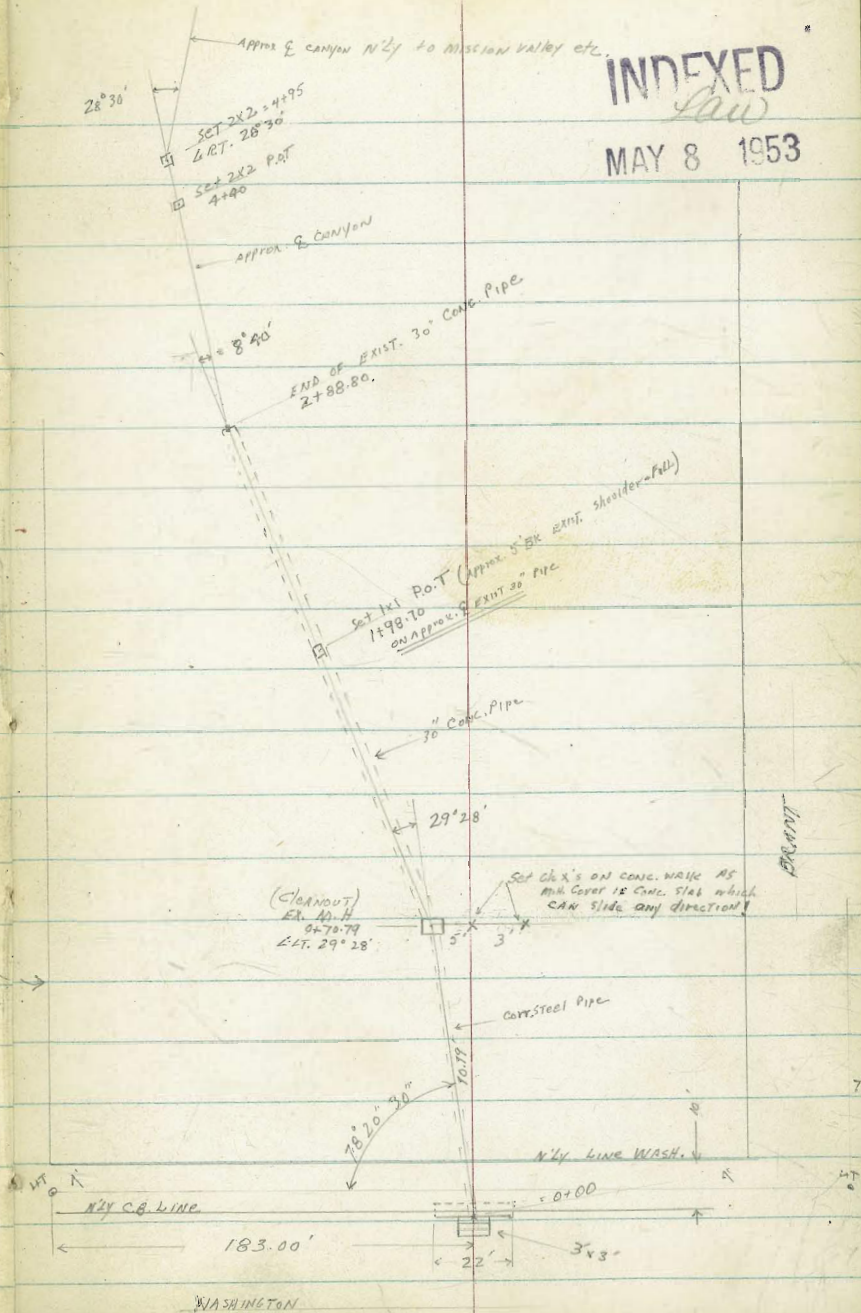 Approx ℄ CANYON N'LY to MISSION VALLEY etc.
INDEXED
Law
MAY 8 1953
28°30'
SET 2X2 = 4+95
∠ RT. 28°30'
Set 2X2 P.O.T
4+40
APPROX. ℄ CANYON
8°40'
END OF EXIST. 30" CONC. PIPE
2+88.80.
Set 1x1 P.O.T (Approx. 5' BK EXIST. Shoulder-Fill)
1+98.70
ON APPROX. ℄ EXIST 30" PIPE
30" CONC. PIPE
29°28'
BRANT
Set Ch X's ON CONC. WALK AS
M.H. Cover IS Conc. Slab which
CAN Slide any direction!
(CLEANOUT)
EX. M.H
0+70.79
∠ LT. 29°28'
5' 3'
Corr. Steel Pipe
70.79'
78°20'30"
10'
N'LY LINE WASH.
LT
7'
7'
LT
N'LY CB. LINE
= 0+00
183.00'
3'x3'
22'
WASHINGTON
7